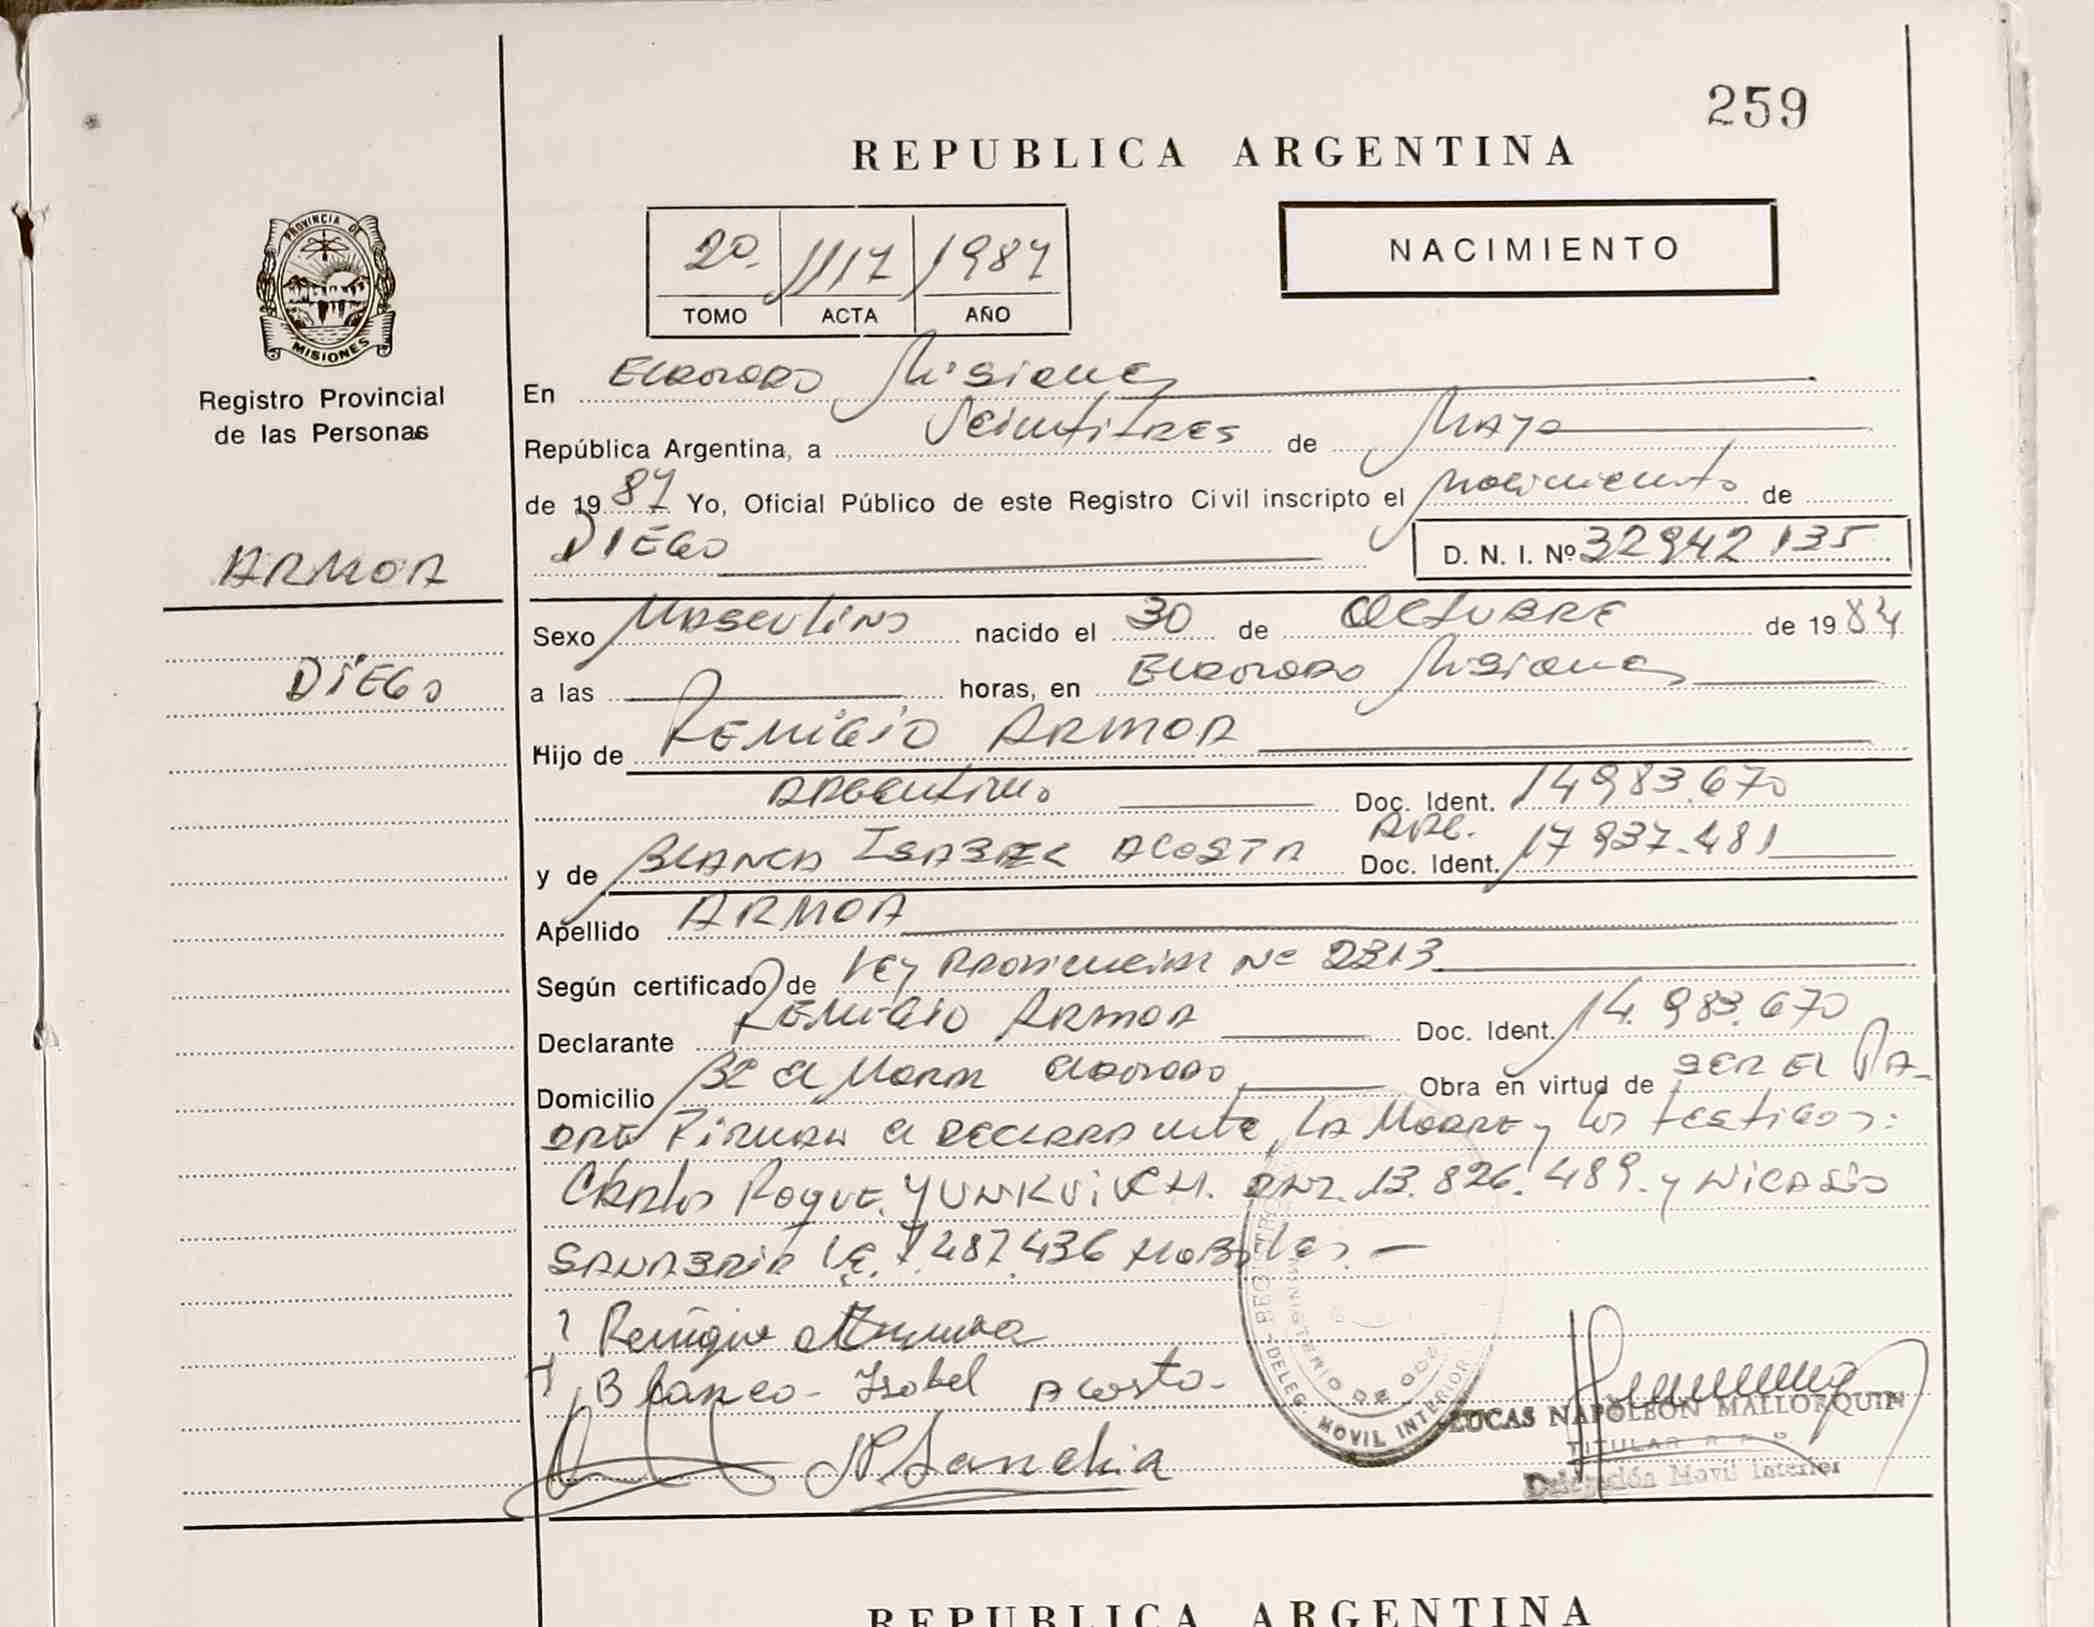 259
REPUBLICA ARGENTINA
20. 1117 1987
TOMO ACTA AÑO
NACIMIENTO
PROVINCIA DE
MISIONES
Registro Provincial
de las Personas
ARMOA
DIEGO
En ELDORADO Misiones
República Argentina, a Veintitres de MAYO
de 1987 Yo, Oficial Público de este Registro Civil inscripto el Nacimiento de
DIEGO D. N. I. Nº 32942135
Sexo MASCULINO nacido el 30 de OCTUBRE de 1984
a las horas, en ELDORADO Misiones
Hijo de REMIGIO ARMOA
ARGENTINO Doc. Ident. 14983.670
y de BLANCA ISABEL ACOSTA ARG. Doc. Ident. 17937.481
Apellido ARMOA
Según certificado de LEY PROVINCIAL Nº 2313
Declarante REMIGIO ARMOA Doc. Ident. 14.983.670
Domicilio Bº El ELDORADO Obra en virtud de SER EL PA-
DRE FIRMAN el DECLARANTE, LA MADRE y los testigos:
Carlos Roque YUNKVICH. DNI. 13.826.489. y NICASIO
SANABRIA LE. 7.487.436 HABILES. -
Remigio Armoa
Blanca - Isabel Acosta -
DELEG. MOVIL INTERIOR
LUCAS NAPOLEON MALLORQUIN
TITULAR R P P
Delegación Movil Interior
REPUBLICA ARGENTINA